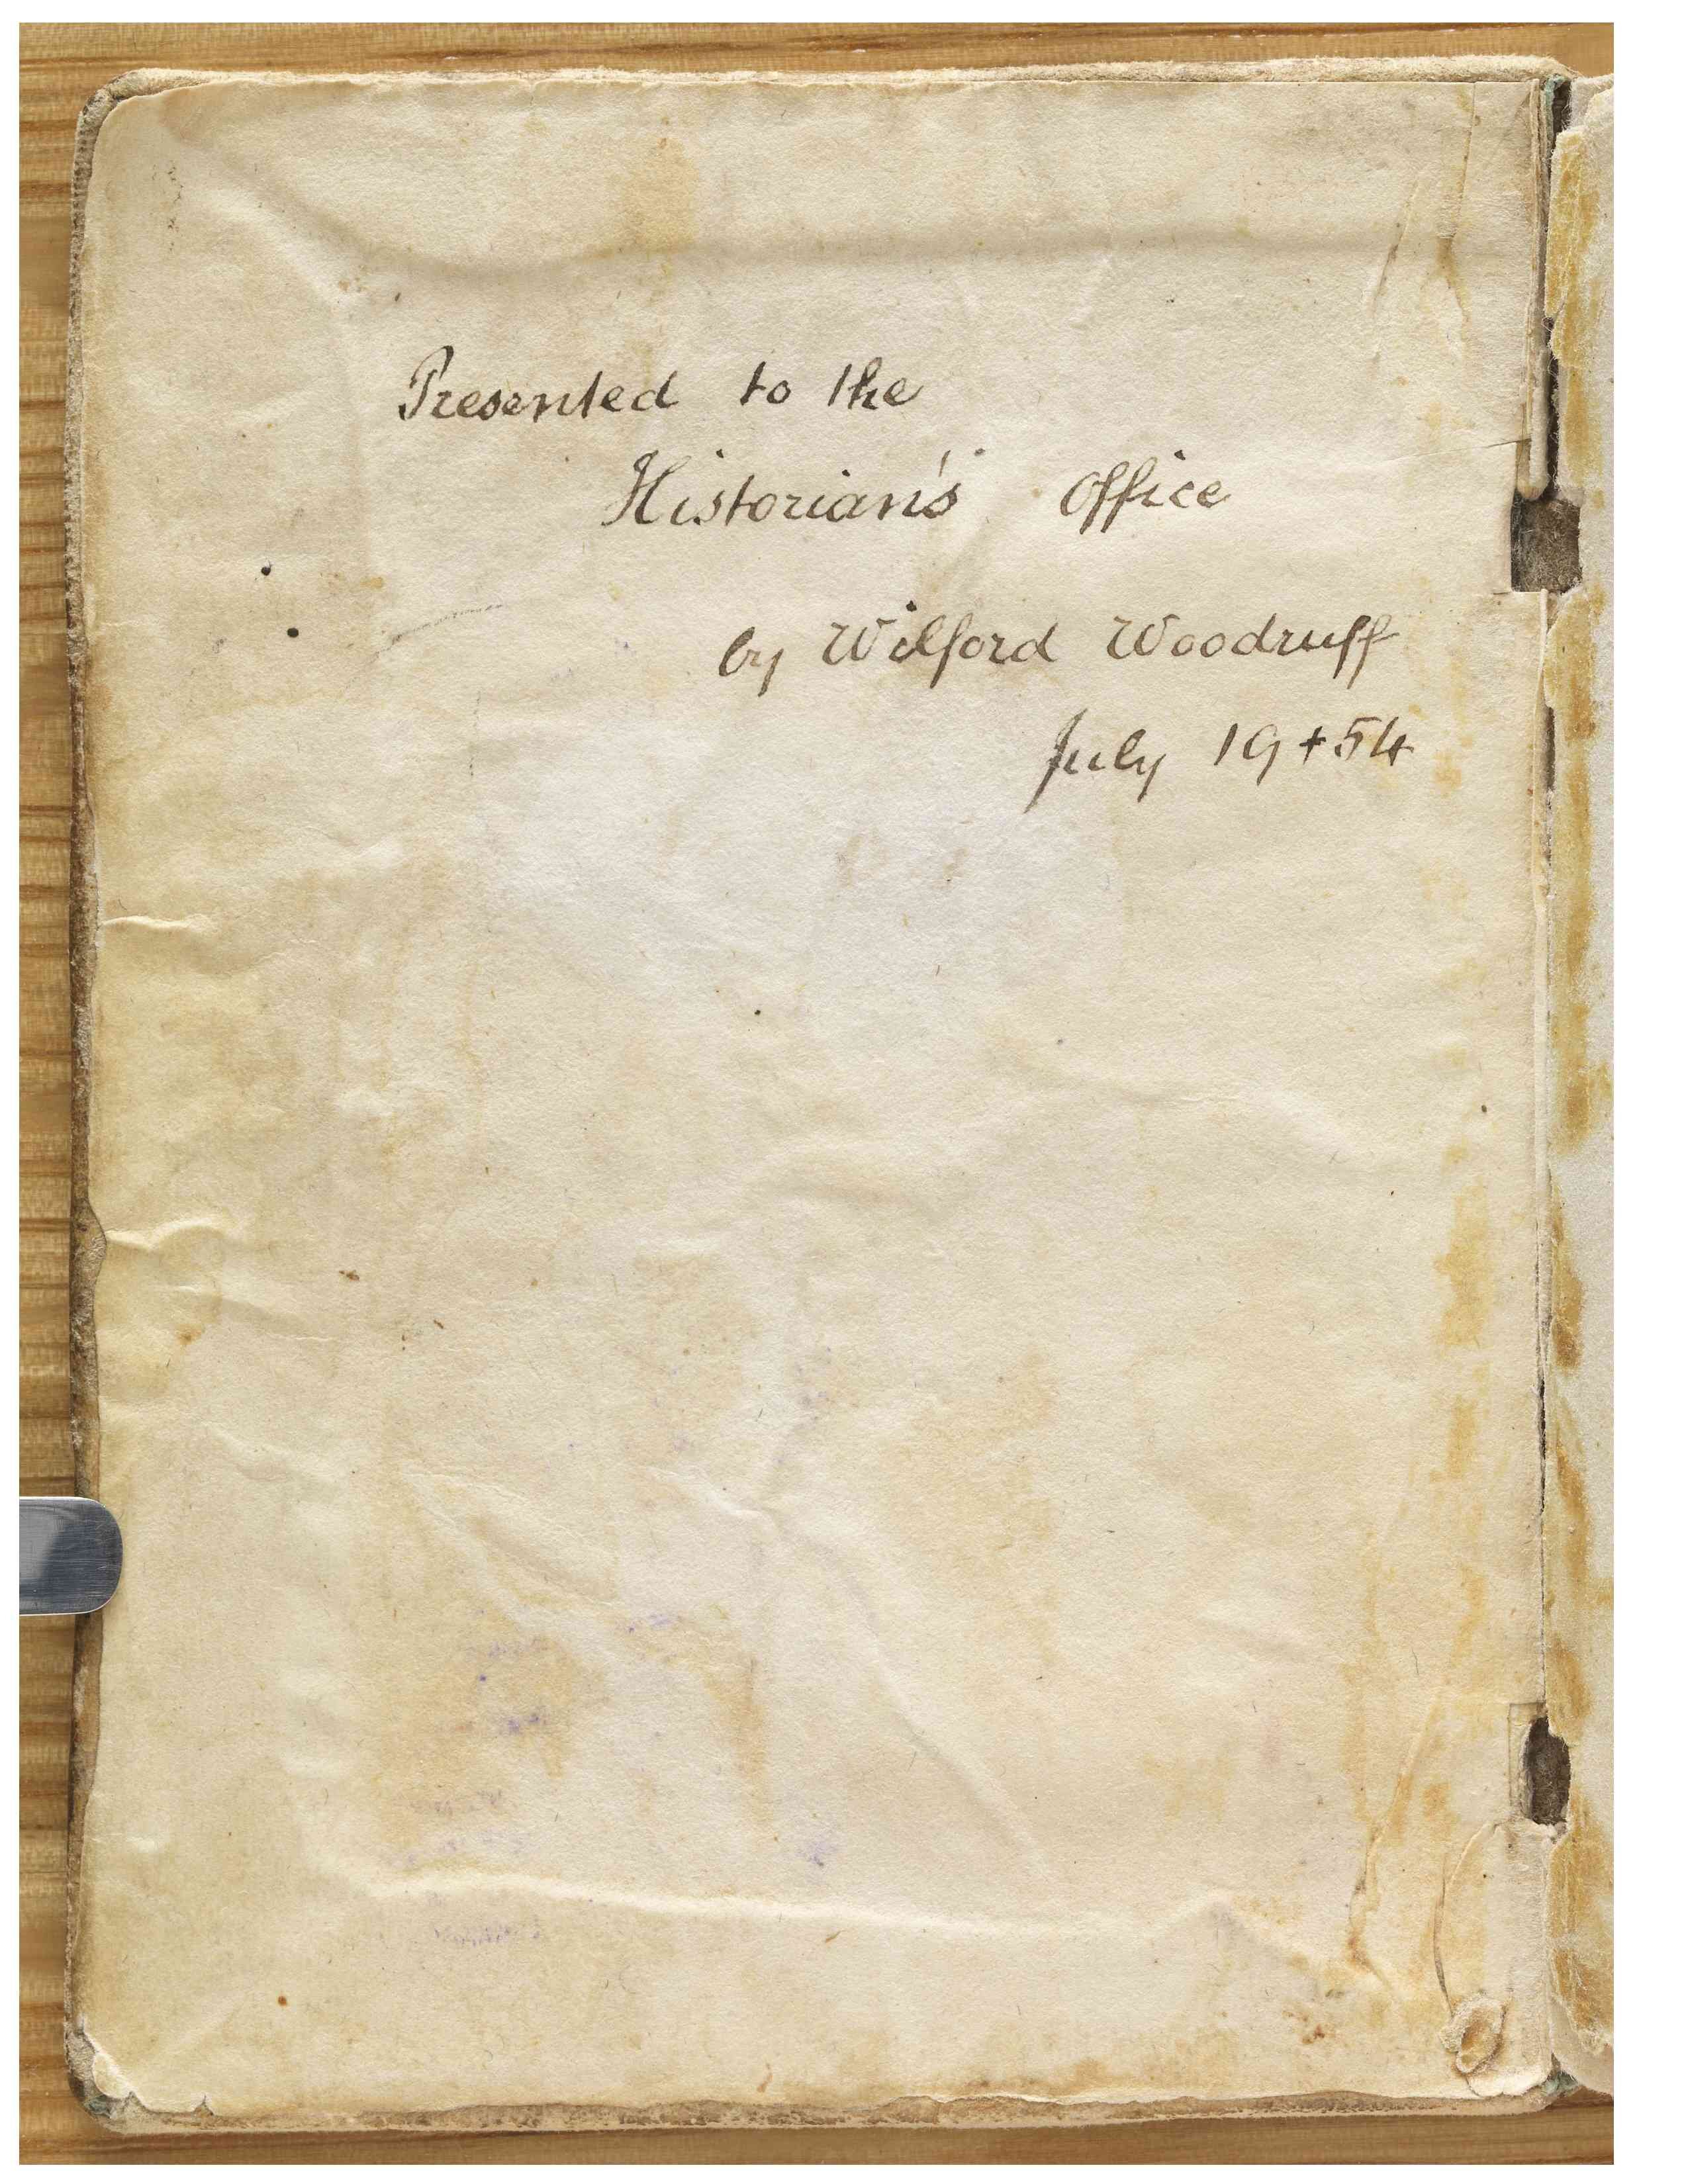 Presented to the
Historian's Office
by Wilford Woodruff
July 19 + 54